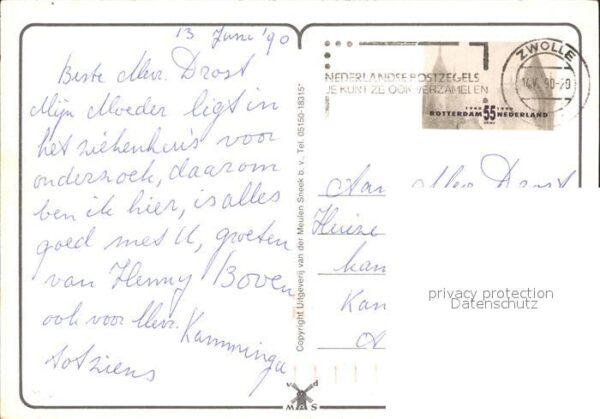 13 Juni '90
Beste Mevr. Drost
Mijn Moeder ligt in
het ziekenhuis voor
onderzoek, daarom
ben ik hier, is alles
goed met U, groeten
van Henny Boven
ook voor Mevr. Kamminga
tot ziens
Copyright Uitgeverij van der Meulen Sneek b.v., Tel. 05150-18315*
NEDERLANDSE POSTZEGELS
JE KUNT ZE OOK VERZAMELEN
ZWOLLE
90-20
1940 1990
ROTTERDAM 55 NEDERLAND
cent
Aan Mevr Drost
Huize
kam
Kam
privacy protection
Datenschutz
v d
M A S